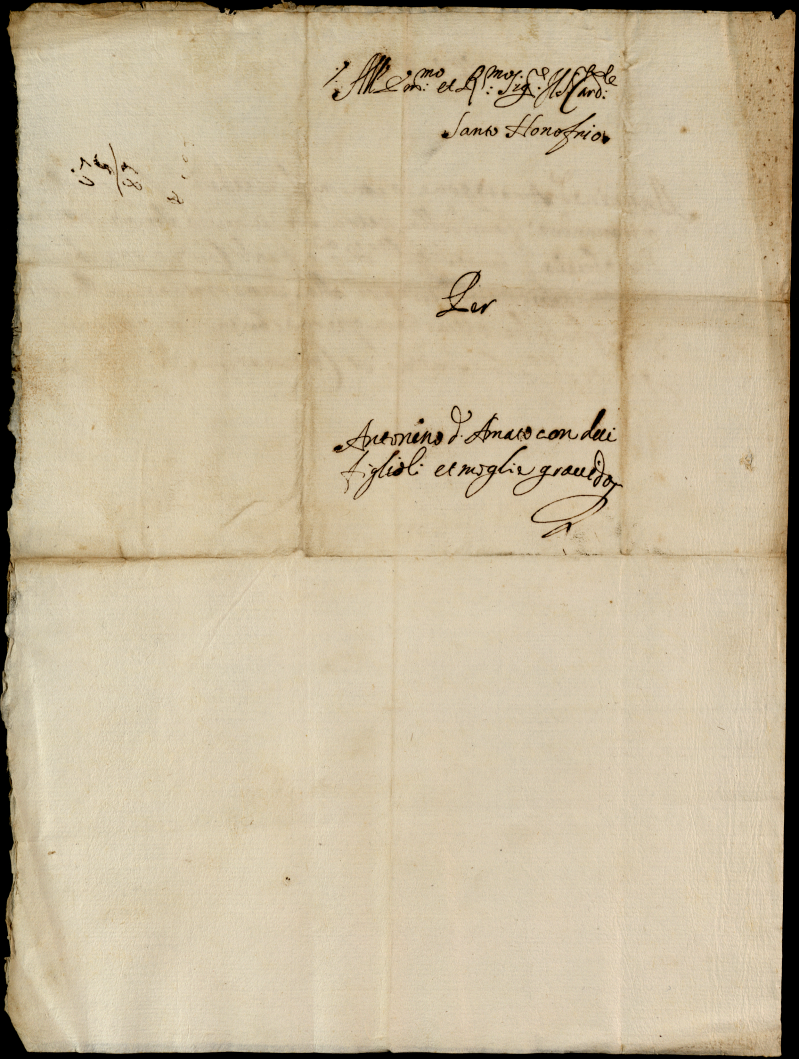 All Em.mo et R.mo Sig.re Il S. Card.le
Santo Honofrio
Per
Antonino d'Amato con dui
figlioli et moglie gravida